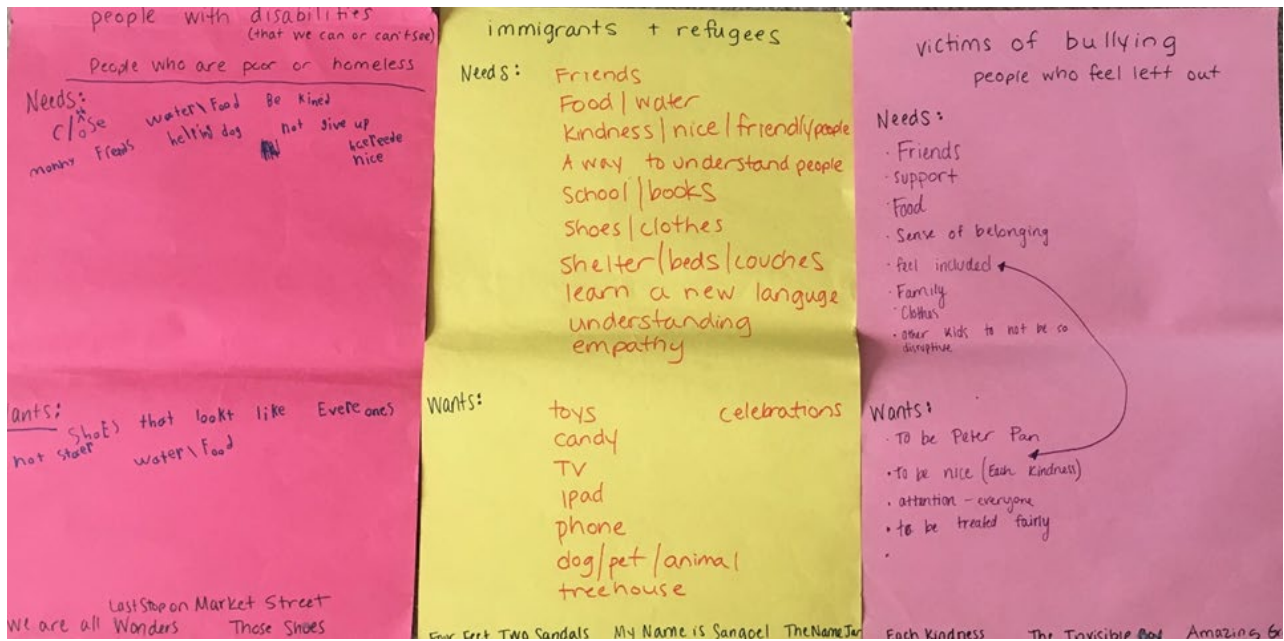 people with disabilities
(that we can or can't see)
People who are poor or homeless
Needs:
close water\Food Be kined
monny Freds helpin dog not give up
nice
ants:
ShoEs that lookt like Evere ones
not staer water\Food
Last Stop on Market Street
We are all Wonders Those Shoes
immigrants + refugees
Needs: Friends
Food/water
Kindness/nice/friendly/people
A way to understand people
School/books
Shoes/clothes
Shelter/beds/couches
learn a new languge
understanding
empathy
Wants: toys celebrations
candy
TV
ipad
phone
dog/pet/animal
treehouse
Four Feet Two Sandals My Name is Sangoel The Name Jar
victims of bullying
people who feel left out
Needs:
· Friends
· support
· Food
· Sense of belonging
· feel included
· Family
· Clothes
· other kids to not be so
disruptive
Wants:
· To be Peter Pan
· To be nice (Each Kindness)
· attention - everyone
· to be treated fairly
·
Each Kindness The Invisible Boy Amazing G